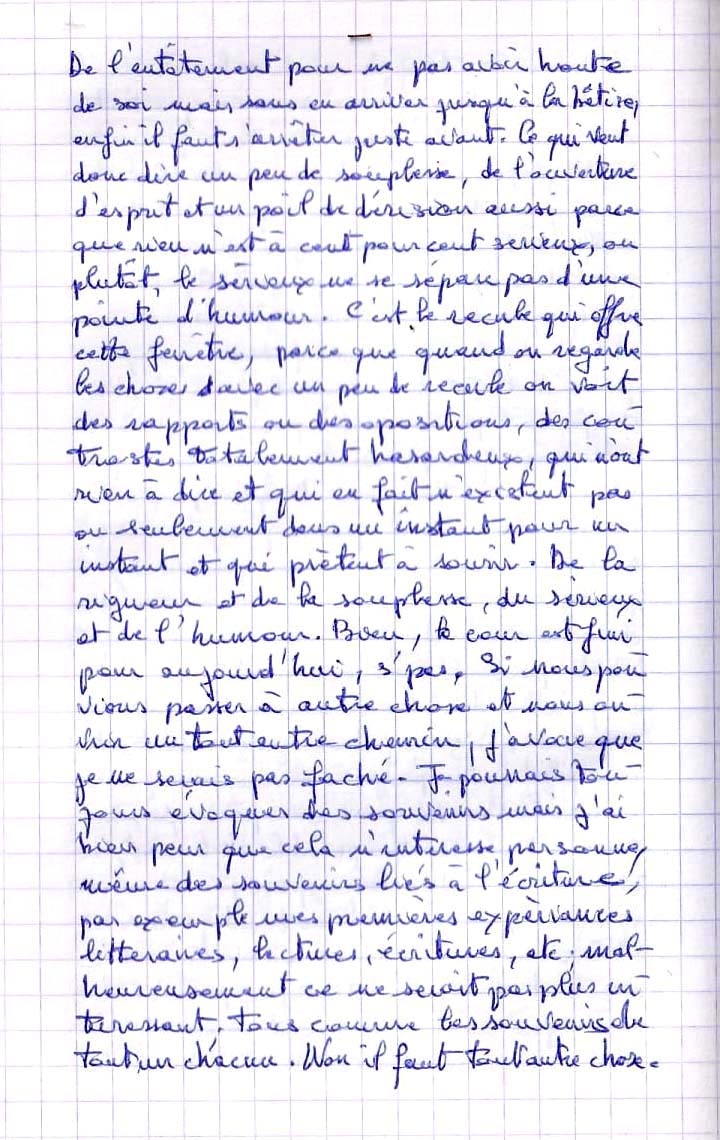 De l'entêtement pour ne pas avoir honte
de soi mais sans en arriver jusqu'à la bêtise,
enfin il faut s'arrêter juste avant. Ce qui veut
donc dire un peu de souplesse, de l'ouverture
d'esprit et un poil de dérision aussi parce
que rien n'est à cent pour cent serieux, ou
plutôt, le sérieux ne se sépare pas d'une
pointe d'humour. C'est le recule qui offre
cette fenêtre, parce que quand on regarde
les choses avec un peu de recule on voit
des rapports ou des opositions, des con-
trastes totalement hasardeux, qui n'ont
rien à dire et qui en fait n'existent pas
ou seulement dans un instant pour un
instant et qui prètent à sourir. De la
rigueur et de la souplesse, du sérieux
et de l'humour. Bien, le cour est fini
pour aujourd'hui, s'pas. Si nous pou-
vions passer à autre chose et nous ou-
vrir un tout autre chemin, j'avoue que
je ne serais pas faché. Je pourrais tou-
jours évoquer des souvenirs mais j'ai
bien peur que cela n'interesse personne,
même des souvenirs liés à l'écriture,
par exemple mes premières expériances
litteraires, lectures, écritures, etc; mal-
heureusement ce ne serait pas plus in-
teressant. Tous comme les souvenirs de
tout un chacun. Non il faut tout autre chose.